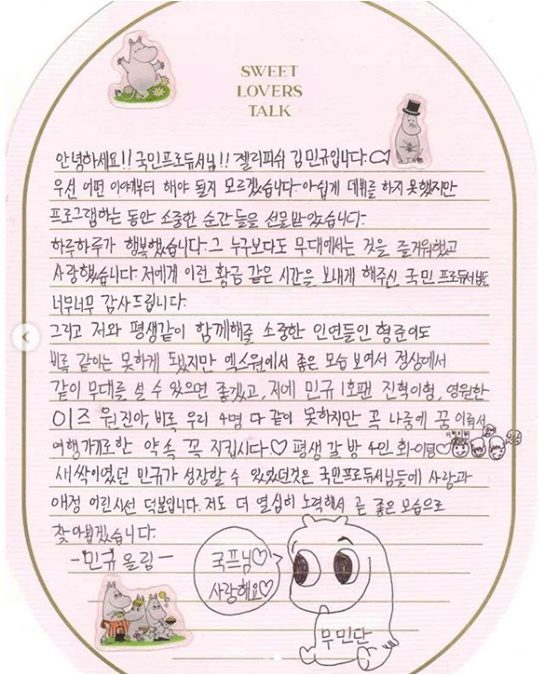 SWEET
LOVERS
TALK
안녕하세요!! 국민프로듀서님!! 젤리피쉬 김민규입니다.♡
우선 어떤 이야기부터 해야 될지 모르겠습니다. 아쉽게 데뷔를 하지 못했지만
프로그램하는 동안 소중한 순간들을 선물받았습니다.
하루하루가 행복했습니다. 그 누구보다도 무대에서는 것을 즐거워했고
사랑했습니다. 저에게 이런 황금 같은 시간을 보내게 해주신 국민 프로듀서님들
너무너무 감사드립니다.
그리고 저와 평생같이 함께해줄 소중한 인연들인 형준이도
비록 같이는 못하게 됐지만 엑스원에서 좋은 모습 보여서 정상에서
같이 무대를 설 수 있으면 좋겠고, 저에 민규 1호팬 진혁이형, 영원한
이즈 원진아, 비록 우리 4명 다 같이 못하지만 꼭 나중에 꿈 이뤄서
여행가기로한 약속 꼭 지킵시다♡ 평생 갈 방 4인 화이팅♡
새싹이였던 민규가 성장할 수 있었던것은 국민프로듀서님들에 사랑과
애정 어린시선 덕분입니다. 저도 더 열심히 노력해서 곧 좋은 모습으로
찾아뵙겠습니다.
-민규 올림-
국프님♡
사랑해요♡
무민단